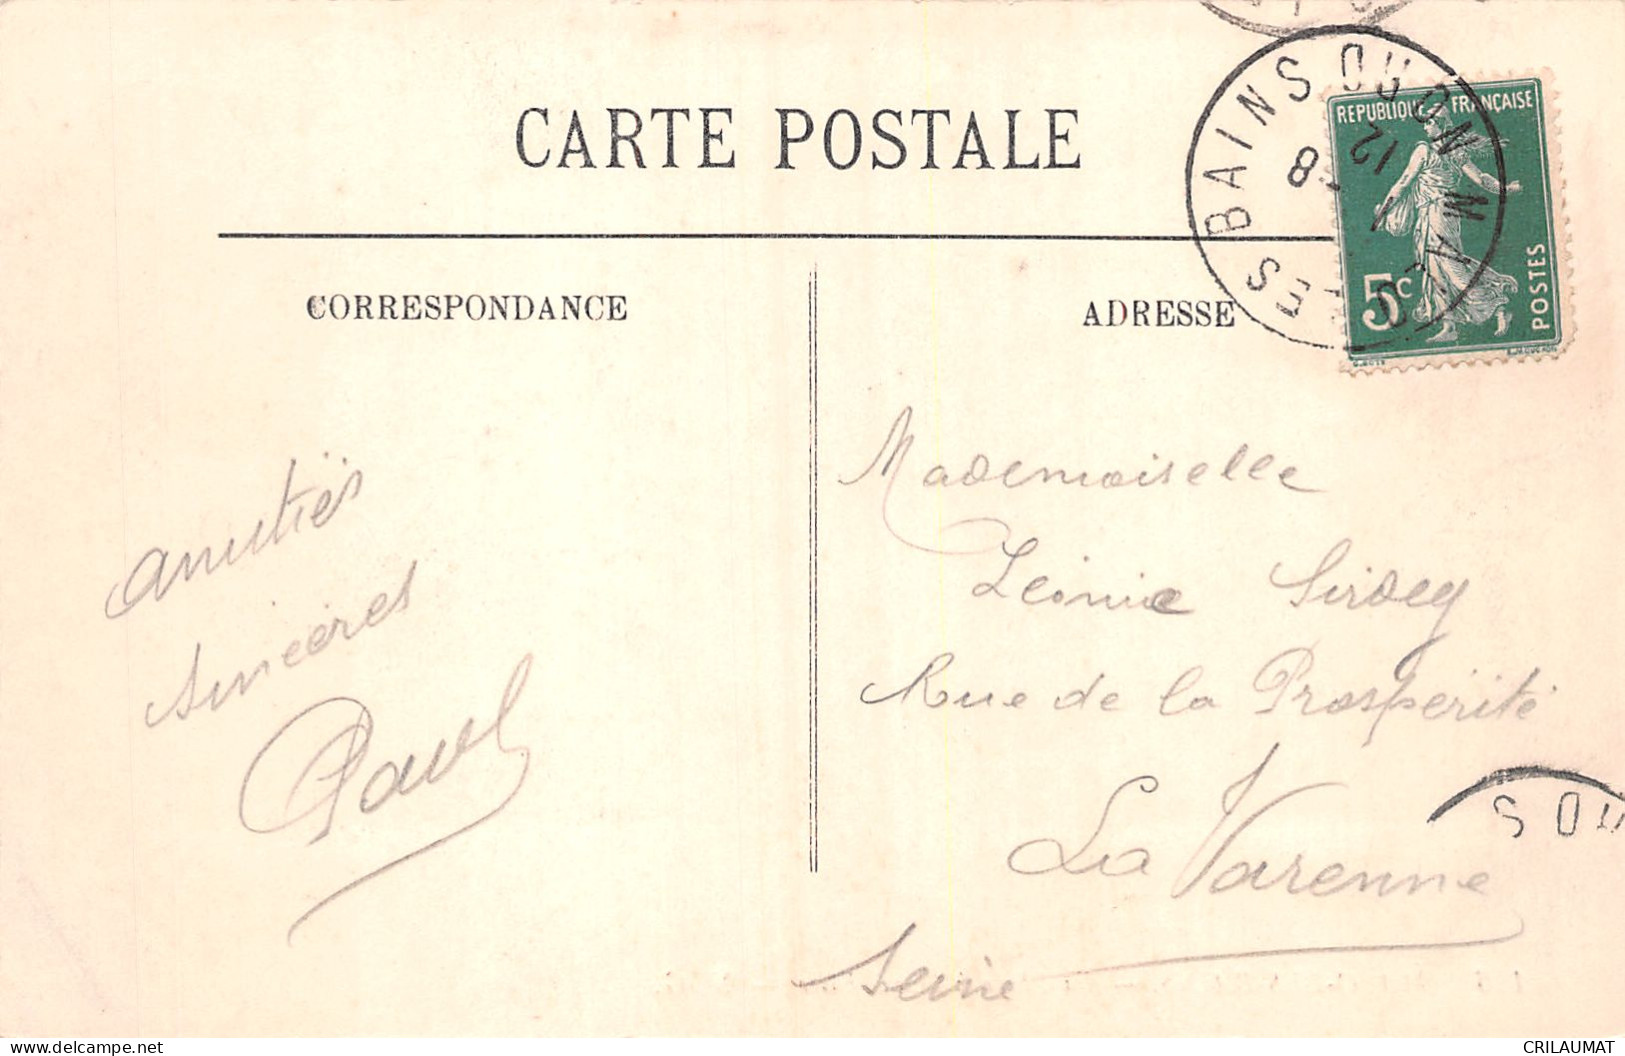 CARTE POSTALE
CORRESPONDANCE
ADRESSE
REPUBLIQUE FRANÇAISE
5c
POSTES
BAINS DU MONT
12
8
amitiés
sincères
Paul
Mademoiselle
Léonie Sirdey
Rue de la Prospérité
La Varenne
Seine
delcampe.net
CRILAUMAT